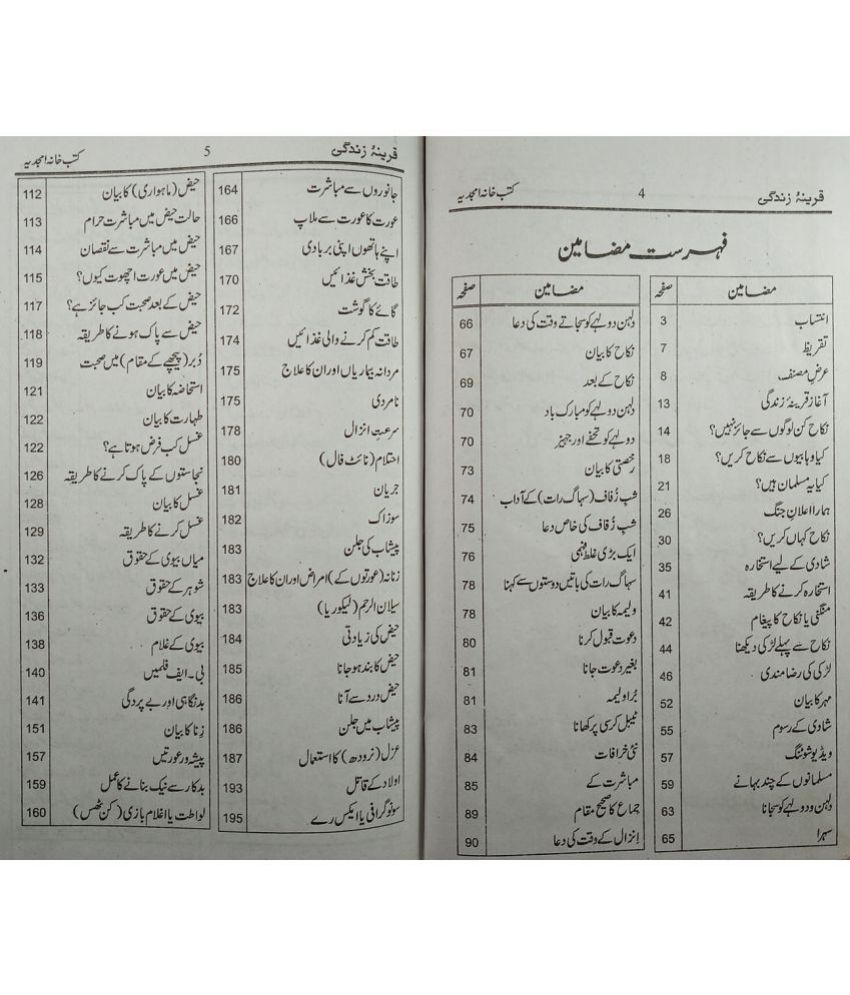 قرینۂ زندگی 4 کتب خانہ امجدیہ
فہرست مضامین
مضامین صفحہ
انتساب 3
تقریظ 7
عرضِ مصنف 8
آغاز قرینۂ زندگی 13
نکاح کن لوگوں سے جائز نہیں؟ 14
کیا وہابیوں سے نکاح کریں؟ 18
کیا یہ مسلمان ہیں؟ 21
ہمارا اعلانِ جنگ 26
نکاح کہاں کریں؟ 30
شادی کے لیے استخارہ 35
استخارہ کرنے کا طریقہ 41
منگنی یا نکاح کا پیغام 42
نکاح سے پہلے لڑکی دیکھنا 44
لڑکی کی رضامندی 46
مہر کا بیان 52
شادی کے رسوم 55
ویڈیو شوٹنگ 57
مسلمانوں کے چند بہانے 59
دلہن و دولہے کو سجانا 63
سہرا 65
مضامین صفحہ
دلہن دولہے کو سجاتے وقت کی دعا 66
نکاح کا بیان 67
نکاح کے بعد 69
دلہن دولہے کو مبارک باد 70
دولہے کو تحفے اور جہیز 70
رخصتی کا بیان 73
شبِ زُفاف (سہاگ رات) کے آداب 74
شبِ زُفاف کی خاص دعا 75
ایک بڑی غلط فہمی 76
سہاگ رات کی باتیں دوستوں سے کہنا 78
ولیمہ کا بیان 78
دعوت قبول کرنا 80
بغیر دعوت جانا 81
بُرا ولیمہ 81
ٹیبل کرسی پر کھانا 83
نئی خرافات 84
مباشرت کے 85
جماع کا صحیح مقام 89
اِنزال کے وقت کی دعا 90
قرینۂ زندگی 5 کتب خانہ امجدیہ
جانوروں سے مباشرت 164
عورت کا عورت سے ملاپ 166
اپنے ہاتھوں اپنی بربادی 167
طاقت بخش غذائیں 170
گائے کا گوشت 172
طاقت کم کرنے والی غذائیں 174
مردانہ بیماریاں اور ان کا علاج 175
نامردی 175
سرعتِ انزال 178
احتلام (نائٹ فال) 180
جریان 181
سوزاک 182
پیشاب کی جلن 183
زنانہ (عورتوں کے) امراض اور ان کا علاج 183
سیلان الرحم (لیکوریا) 183
حیض کی زیادتی 184
حیض کا بند ہو جانا 185
حیض درد سے آنا 186
پیشاب میں جلن 186
عزل (نرودھ) کا استعمال 187
اولاد کے قاتل 193
سونوگرافی یا ایکس رے 195
حیض (ماہواری) کا بیان 112
حالت حیض میں مباشرت حرام 113
حیض میں مباشرت سے نقصان 114
حیض میں عورت اچھوت کیوں؟ 115
حیض کے بعد صحبت کب جائز ہے؟ 117
حیض سے پاک ہونے کا طریقہ 118
دُبر (پیچھے کے مقام) میں صحبت 119
استحاضہ کا بیان 121
طہارت کا بیان 122
غسل کب فرض ہوتا ہے؟ 122
نجاستوں کے پاک کرنے کا طریقہ 126
غسل کا بیان 128
غسل کرنے کا طریقہ 129
میاں بیوی کے حقوق 132
شوہر کے حقوق 133
بیوی کے حقوق 136
بیوی کے غلام 138
بی۔ ایف فلمیں 140
بدنگاہی اور بے پردگی 141
زِنا کا بیان 151
پیشہ ور عورتیں 157
بدکار سے نیک بنانے کا عمل 159
لواطت یا اغلام بازی ( کن ٹھس ) 160